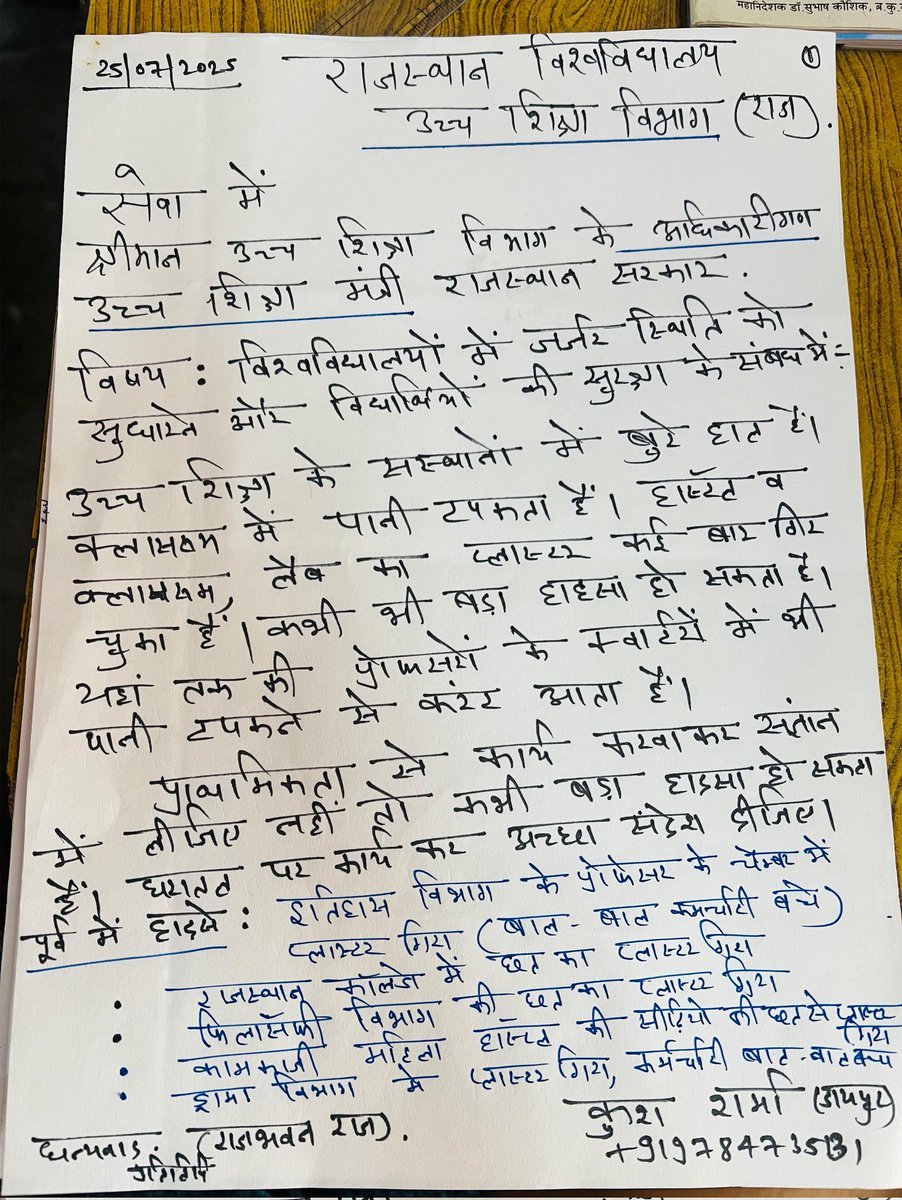 महानिदेशक डॉ. सुभाष कौशिक, ब.कु.
25/07/2025
①
राजस्थान विश्वविद्यालय
उच्च शिक्षा विभाग (राज).
सेवा में
श्रीमान उच्च शिक्षा विभाग के अधिकारीगन
उच्च शिक्षा मंत्री राजस्थान सरकार.
विषय : विश्वविद्यालयों में जर्जर स्थिति को
सुधारने और विद्यार्थियों की सुरक्षा के संबध में:-
उच्च शिक्षा के संस्थानों में बुरे हाल हैं।
क्लासरूम में पानी टपकता हैं। हॉस्टल व
क्लासरूम, लैब का प्लास्टर कई बार गिर
चुका हैं। कभी भी बड़ा हादसा हो सकता है।
यहां तक की प्रोफेसरों के क्वार्टरों में भी
पानी टपकने से करंट आता हैं।
प्राथमिकता से कार्य करवाकर संज्ञान
में लीजिए नहीं तो कभी बड़ा हादसा हो सकता
हैं। धरातल पर कार्य कर अच्छा संदेश दीजिए।
पूर्व में हादसे : इतिहास विभाग के प्रोफेसर के चेम्बर में
प्लास्टर गिरा (बाल-बाल कर्मचारी बचे)
• राजस्थान कॉलेज में छत का प्लास्टर गिरा
• फिलॉसफी विभाग की छत का प्लास्टर गिरा
• कामकाजी महिला हॉस्टल की सीढ़ियो की छत से प्लास्टर गिरा
• ड्रामा विभाग में प्लास्टर गिरा, कर्मचारी बाल-बाल बचा
कुश शर्मा (जयपुर)
धन्यवाद. (राजभवन राज).
प्रतिलिपि